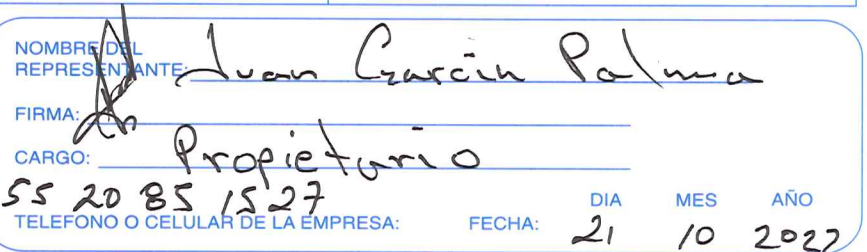 NOMBRE DEL
REPRESENTANTE: Juan García Palma
FIRMA:
CARGO: Propietario
55 20 85 1527
TELEFONO O CELULAR DE LA EMPRESA: FECHA: DIA 21 MES 10 AÑO 2022